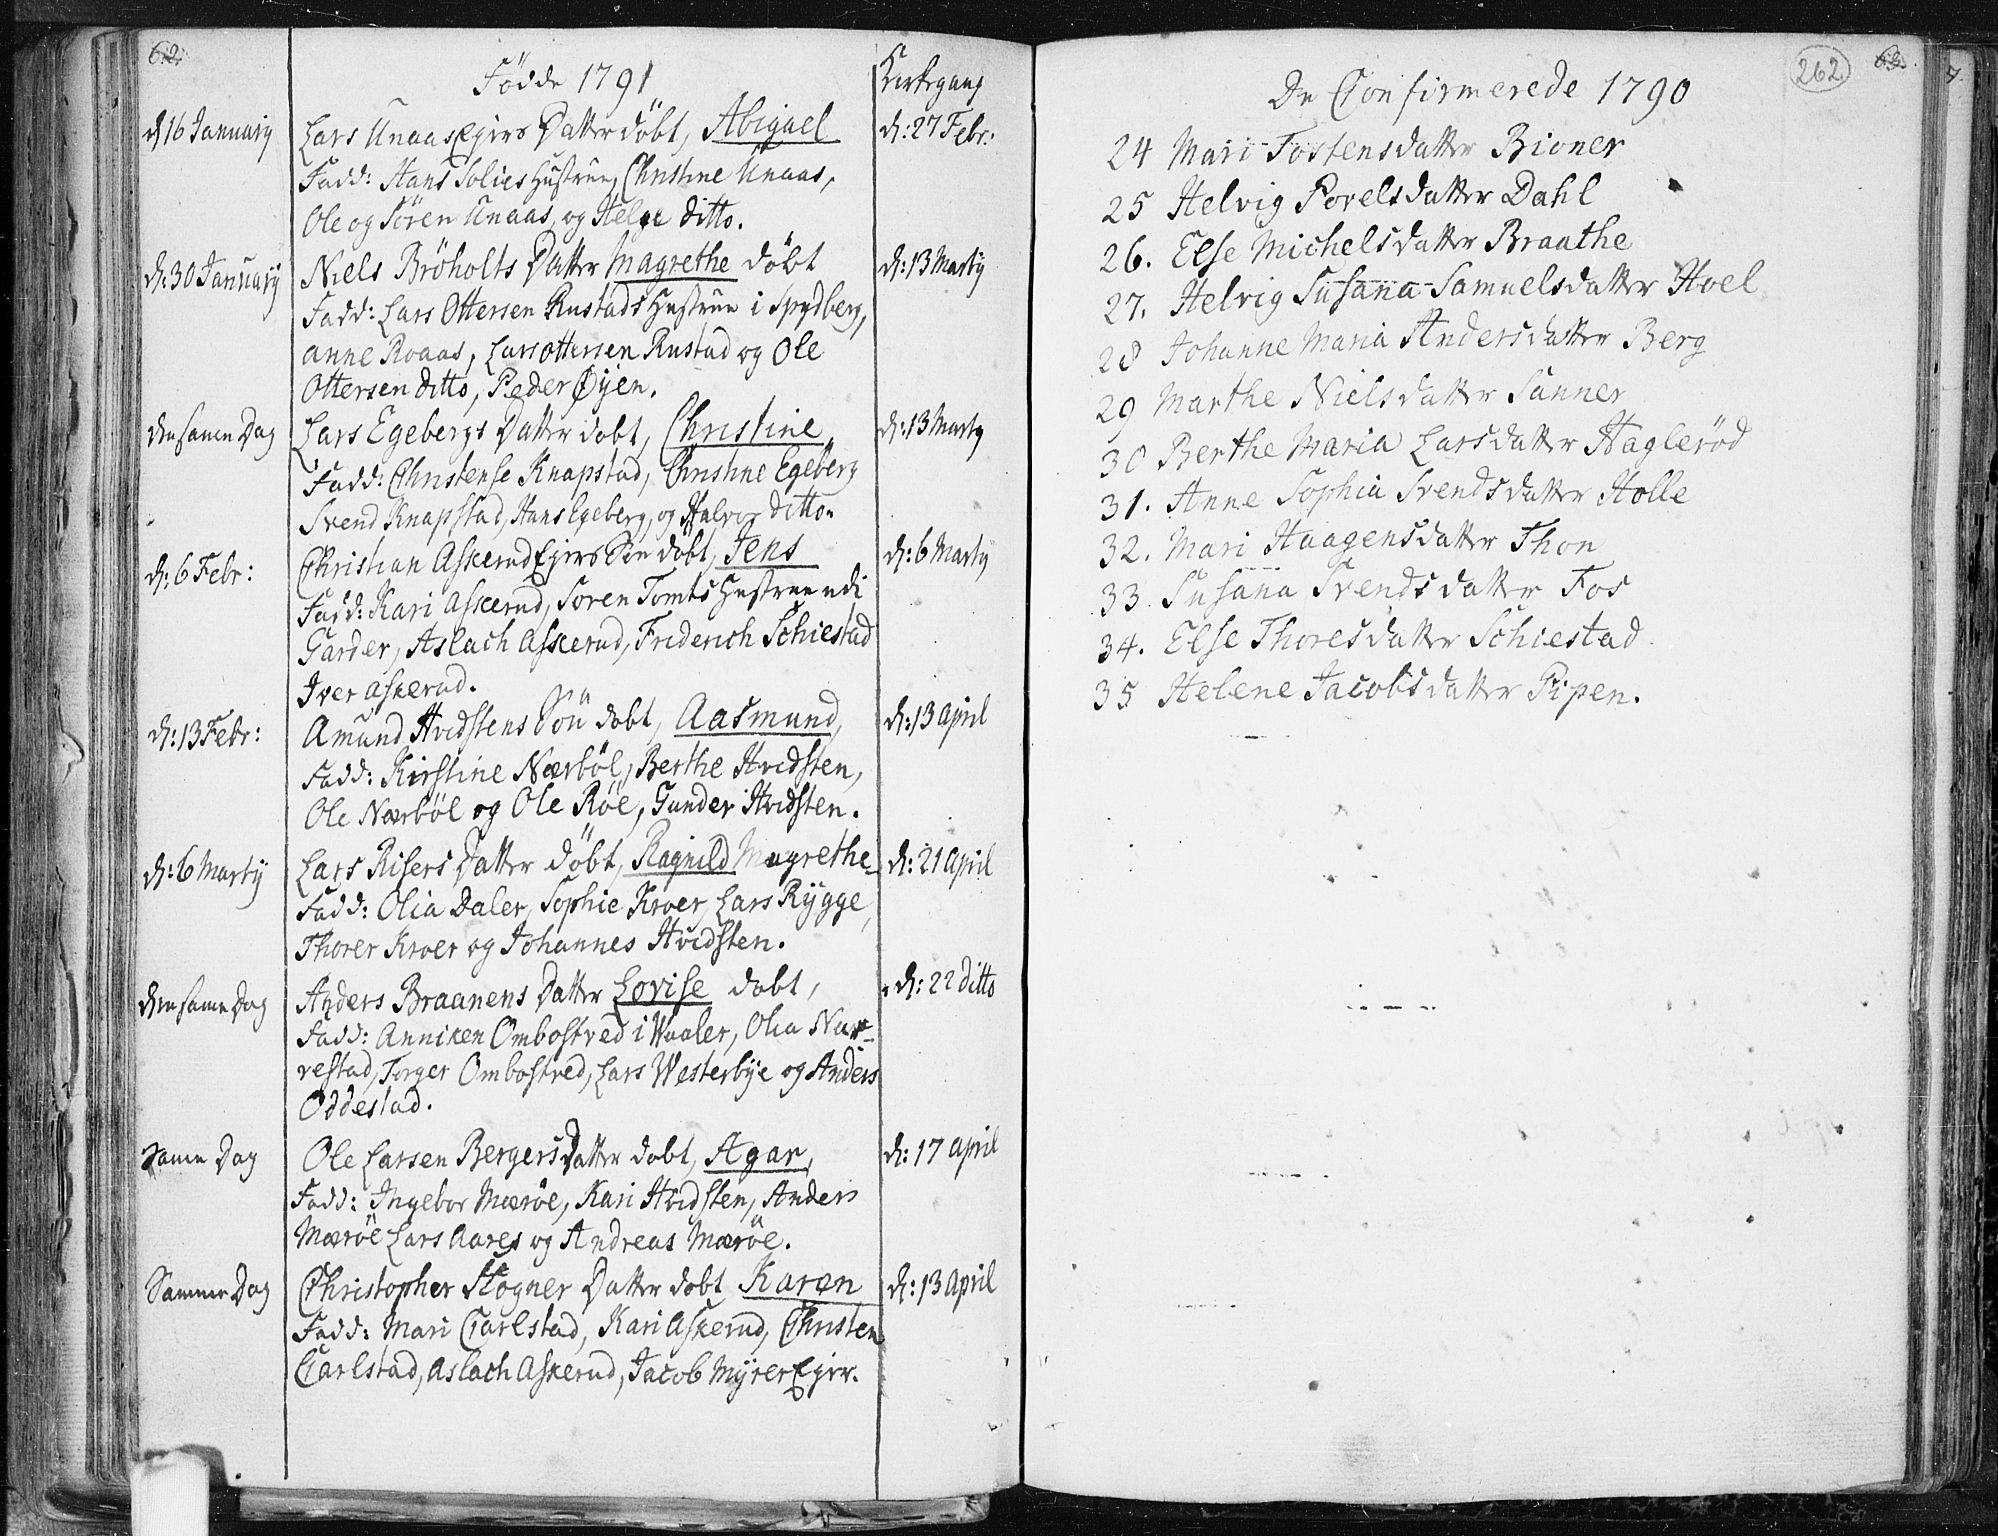 62.
Fødde 1791
Kirkegang
d: 16 January
Lars Unaas Ejers Datter döbt, Abigael
d: 27 Febr:
Fadd: Hans Solies Hustrue, Christine Unaas,
Ole og Sören Unaas, og Helge ditto.
d: 30 January
Niels Bröholts Datter Magrethe döbt
d: 13 Marty
Fadd: Lars Ottersen Rustads Hustrue i Spydberg,
Anne Roaas, Lars Ottersen Rustad og Ole
Ottersen ditto, Peder Øyen.
den samme Dag
Lars Egebergs Datter dobt, Christine
d: 13 Marty
Fadd: Christense Knapstad, Christine Egeberg
Svend Knapstad, Hans Egeberg, og Halvor ditto.
d: 6 Febr:
Christian Askerud Ejers Sön döbt, Jens
d: 6 Marty
Fadd: Kari Askerud, Soren Tomts Hustrue udi
Garder, Aslach Askerud, Friderich Schiestad
Iver Askerud.
d: 13 Febr:
Amund Hvidstens Sön dobt, Aasmund,
d: 13 April
Fadd: Kirstine Nærböl, Berthe Hvidsten,
Ole Nærböl og Ole Röe, Gunder Hvidsten.
d: 6 Martij
Lars Risers Datter döbt, Ragnild Magrethe
d: 21 April
Fadd: Olia Daler, Sophie Kroer, Lars Rygge,
Thorer Kroer og Johannes Hvidsten.
den samme Dag
Anders Braanens Datter Lovise dobt,
d: 22 ditto
Fadd: Anniken Ombostved i Waaler, Olia Nar-
restad, Torger Ombostved, Lars Westerbye og Anders
Oddestad.
Samme Dag
Ole Larsen Bergers Datter dobt, Agar,
d: 17 April
Fadd: Ingebor Mæröe, Kari Hvidsten, Anders
Mæröe Lars Aares og Andreas Mæröe.
Samme Dag
Christopher Skogner Datter dobt, Karen
d: 13 April
Fadd: Mari Carlstad, Kari Askerud, Christen
Carlstad, Aslach Askerud, Jacob Myrer Ejer.
262
De Confirmerede 1790
24 Mari Tostensdatter Bioner
25 Helvig Povelsdatter Dahl
26. Else Michelsdatter Braathe
27. Helvig Susana Samuelsdatter Hoel
28 Johanne Maria Andersdatter Berg
29 Marthe Nielsdatter Sanner
30 Berthe Maria Larsdatter Hagleröd
31. Anne Sophia Svendsdatter Holle
32. Mari Haagensdatter Thon
33. Susana Svendsdatter Fos
34. Else Thoresdatter Schiestad
35 Helene Jacobsdatter Pipen.